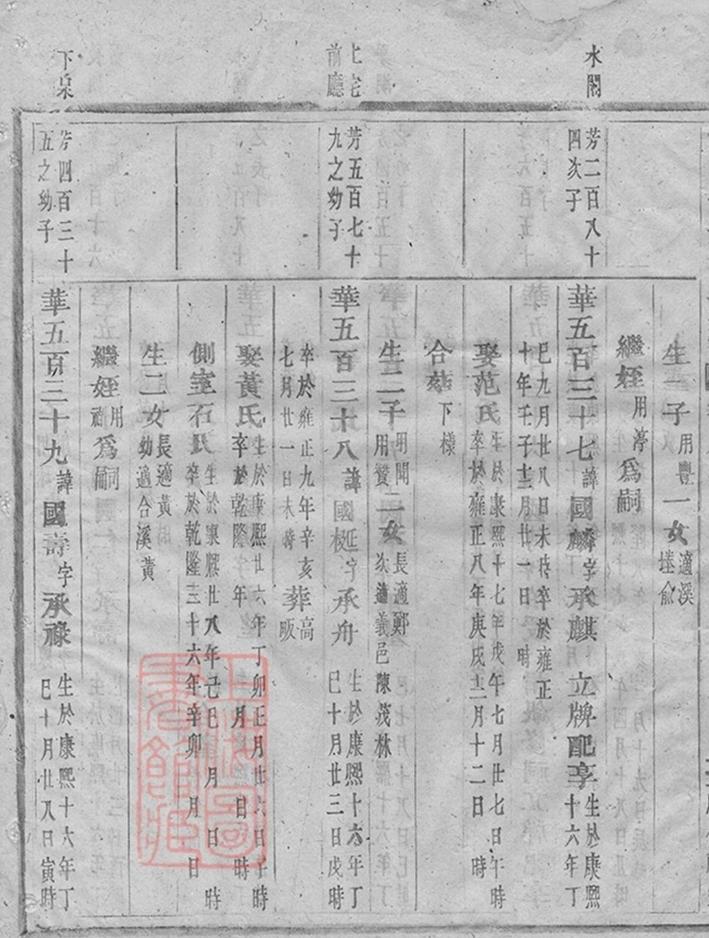 生一子用豐一女適溪塘俞
繼姪用淳為嗣
水閣
芳二百八十四次子
華五百三十七諱國麟字承麒立牌配享生於康熙十六年丁
巳九月廿八日未時卒於雍正十年壬子十二月廿一日 時
娶范氏生於康熙十七年戊午七月廿七日午時卒於雍正八年庚戌十二月十二日 時
合葬下樣
生二子用聞用贊二女長適鄭次適義邑陳茂林
上宅前廳
芳五百七十九之幼子
華五百三十八諱國梃字承舟生於康熙十六年丁巳十月廿三日戌時
卒於雍正九年辛亥七月廿一日未時葬高畈
娶黃氏生於康熙廿六年丁卯正月廿六日午時卒於乾隆 年 月 日 時
側室石氏生於康熙廿八年己巳 月 日 時卒於乾隆三十六年辛卯 月 日
生二女長適黃 幼適合溪黃
繼姪用 為嗣
下宋
芳四百三十五之幼子
華五百三十九諱國壽字承祿生於康熙十六年丁巳十月廿八日寅時